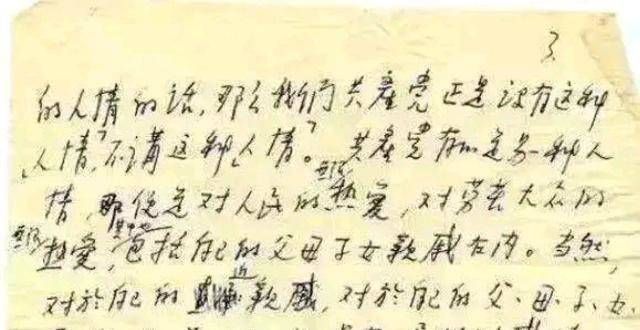 3
的人情的话，那么我们共產党正是没有这种
「人情」，不講这种「人情」。共產党有的是另一种人
情，那便是对人民的无限热爱，对劳苦大众的
无限热爱，其中也包括自己的父母子女親戚在内。当然，
对於自己的近親戚，对於自己的父、母、子、女、